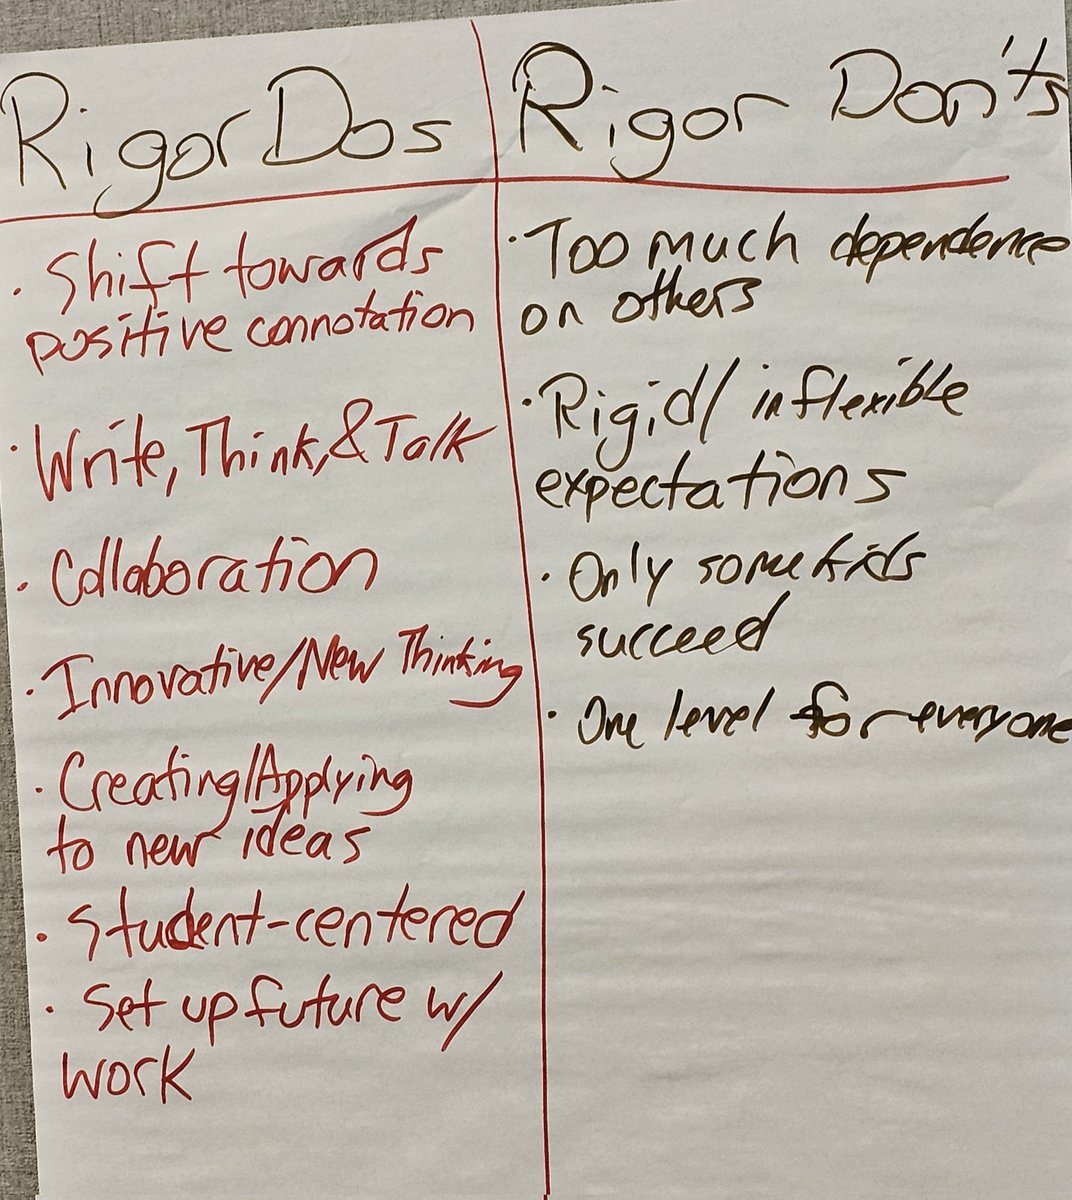 Rigor Dos
• Shift towards
positive connotation
• Write, Think, & Talk
• Collaboration
• Innovative/New Thinking
• Creating/Applying
to new ideas
• Student-centered
• Set up future w/
work
Rigor Don'ts
• Too much dependence
on others
• Rigid/inflexible
expectations
• Only some kids
succeed
• One level for everyone